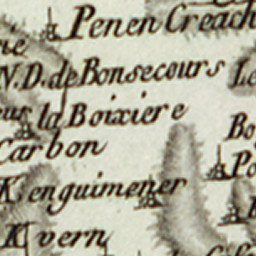 Penen Creach
rie
N.D. de Bonsecours Le
eur la Boixiere
Bo
Carbon
Po
Kenguimener
B
K vern